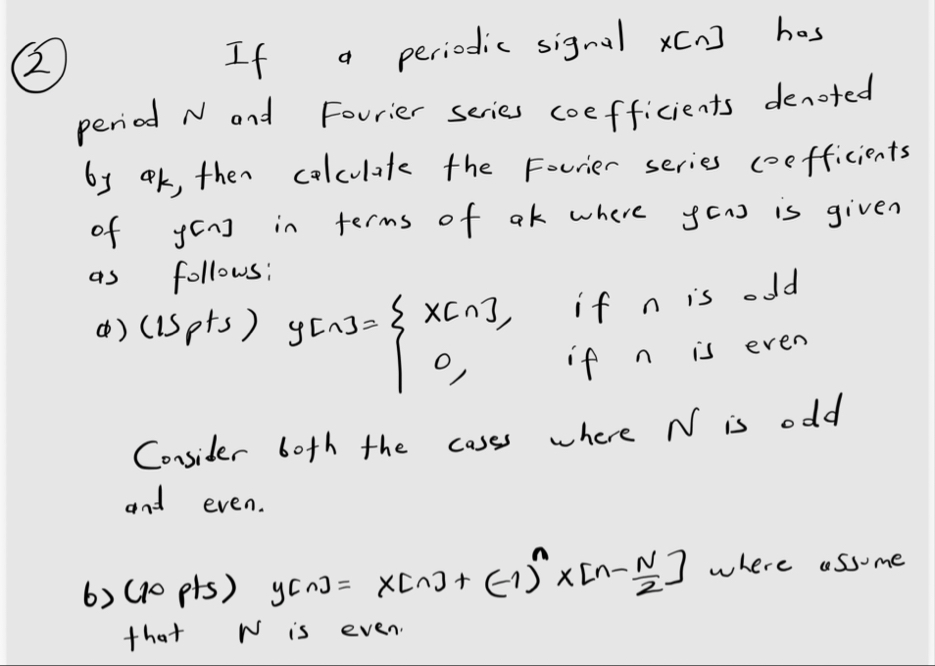 2 If a periodic signal x[n] has
period N and Fourier series coefficients denoted
by ak, then calculate the Fourier series coefficients
of y[n] in terms of ak where y[n] is given
as follows:
a) (15pts) y[n]= { x[n], if n is odd
0, if n is even
Consider both the cases where N is odd
and even.
b) (10 pts) y[n]= x[n]+ (-1)^n x[n-N/2] where assume
that N is even.